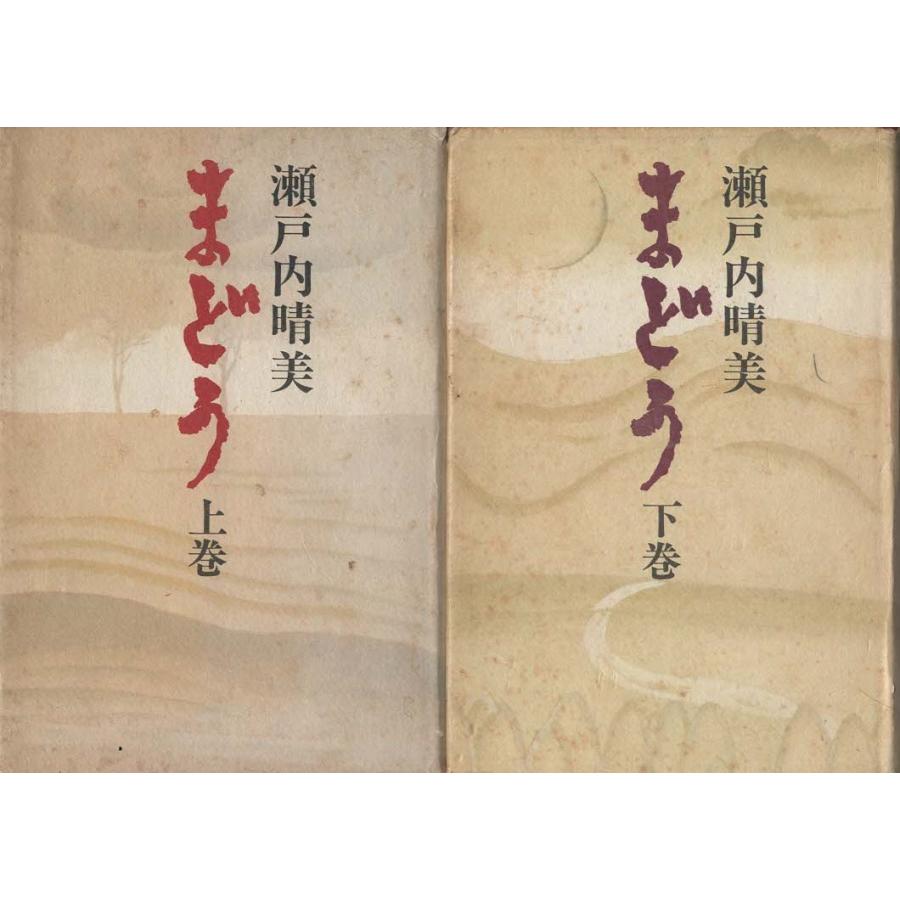 瀬戸内晴美
まどう
上巻
瀬戸内晴美
まどう
下巻